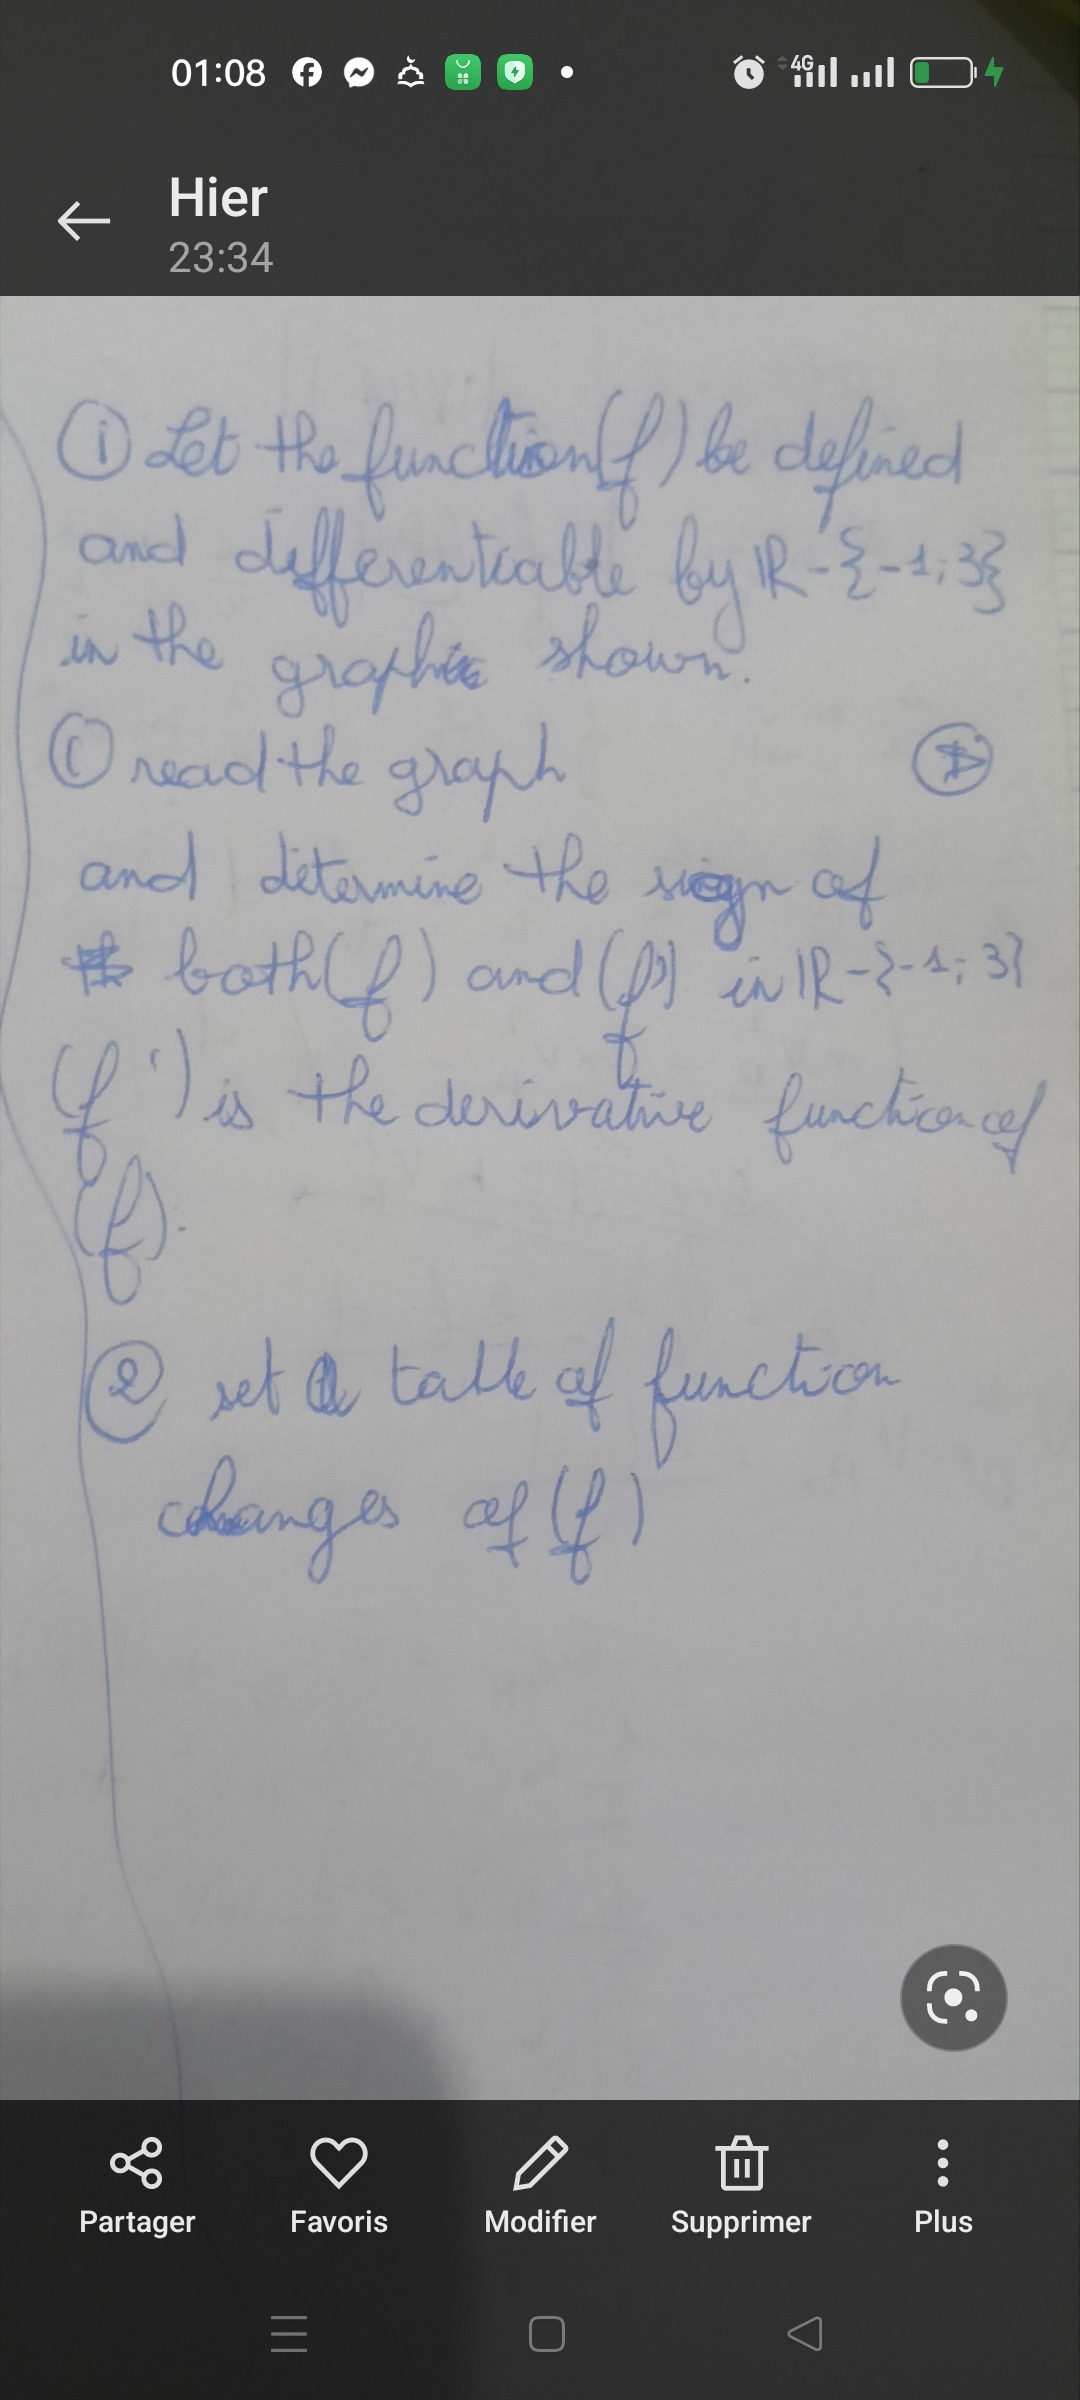 01:08
4G
Hier
23:34
① Let the function (f) be defined
and differentiable by IR-{-1;3}
in the graphic shown.
① read the graph
and ditermine the sign of
both (f) and (f') in IR-{-1;3}
(f') is the derivative function of
(f).
② set a table of function
changes of (f)
Partager Favoris Modifier Supprimer Plus